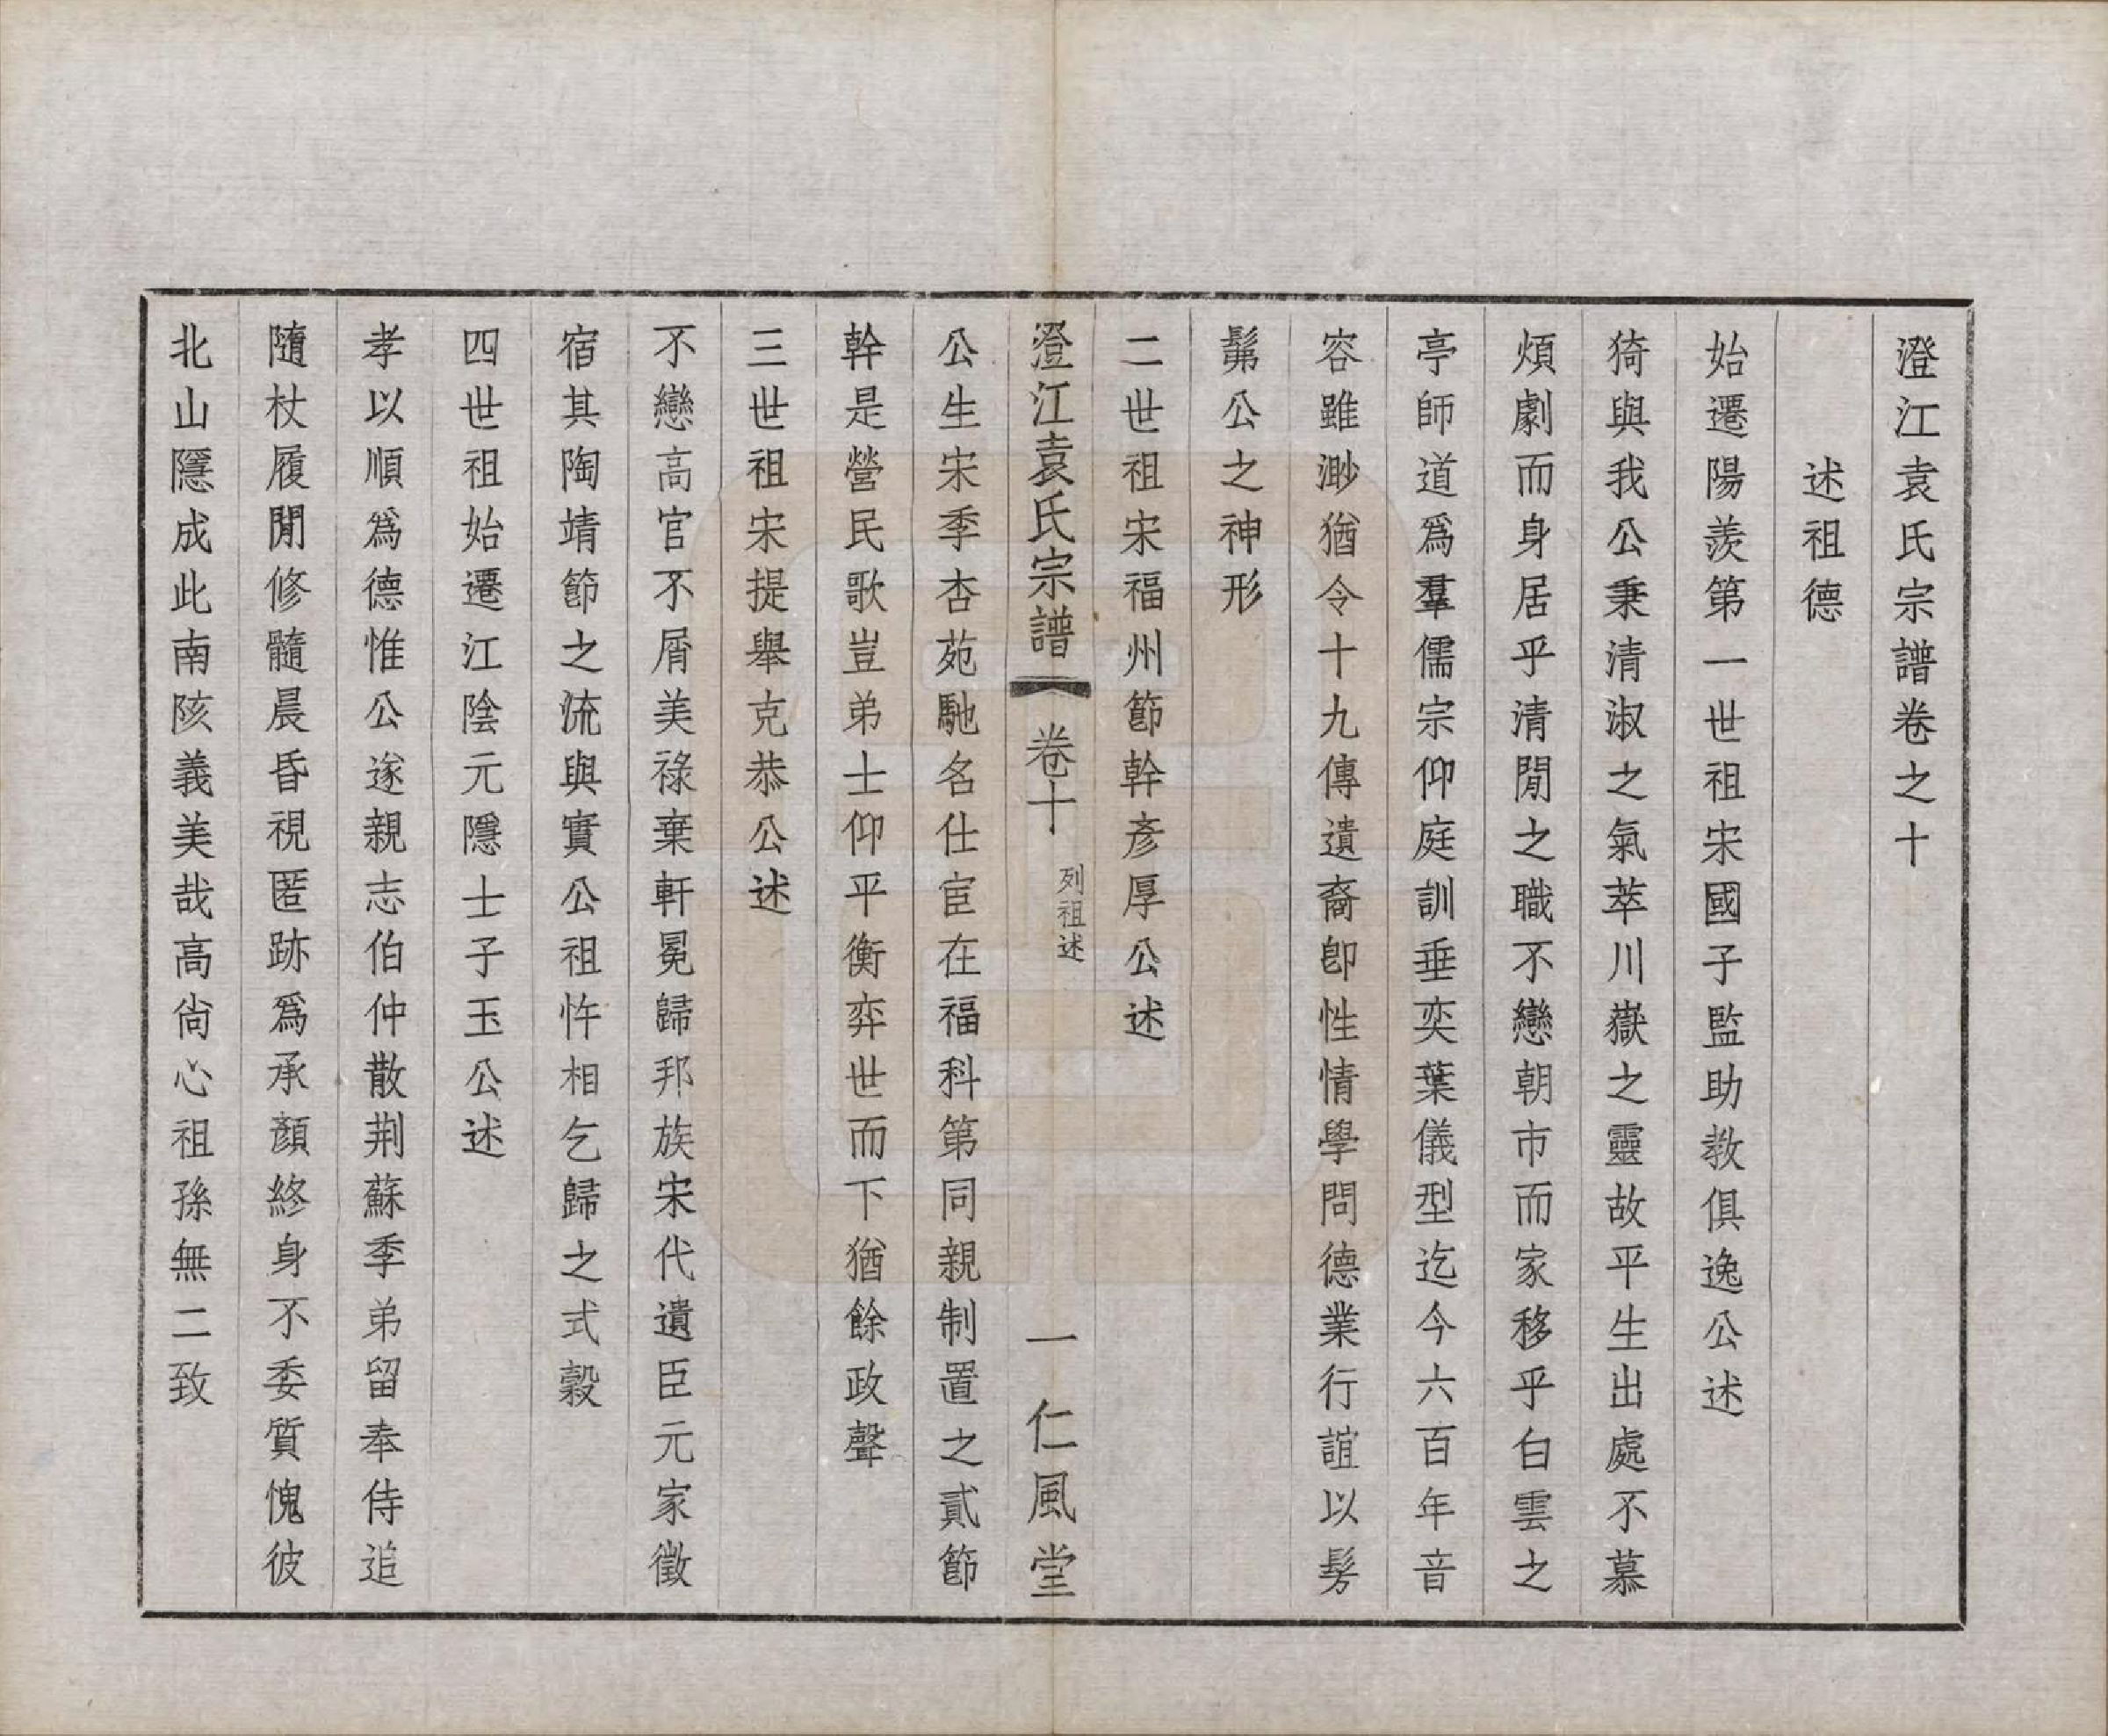 澄江袁氏宗譜卷之十
述祖德
始遷陽羨第一世祖宋國子監助教俱逸公述
猗與我公秉清淑之氣萃川嶽之靈故平生出處不慕
煩劇而身居乎清閒之職不戀朝市而家移乎白雲之
亭師道爲羣儒宗仰庭訓垂奕葉儀型迄今六百年音
容雖渺猶令十九傳遺裔卽性情學問德業行誼以髣
髴公之神形
二世祖宋福州節幹彥厚公述
澄江袁氏宗譜 卷十 列祖述 一 仁風堂
公生宋季杏苑馳名仕宦在福科第同親制置之貳節
幹是營民歌豈弟士仰平衡弈世而下猶餘政聲
三世祖宋提舉克恭公述
不戀高官不屑美祿棄軒冕歸邦族宋代遺臣元家徵
宿其陶靖節之流與實公祖忤相乞歸之式穀
四世祖始遷江陰元隱士子玉公述
孝以順爲德惟公遂親志伯仲散荆蘇季弟留奉侍追
隨杖履閒修髓晨昏視匿跡爲承顏終身不委質愧彼
北山隱成此南陔義美哉高尙心祖孫無二致